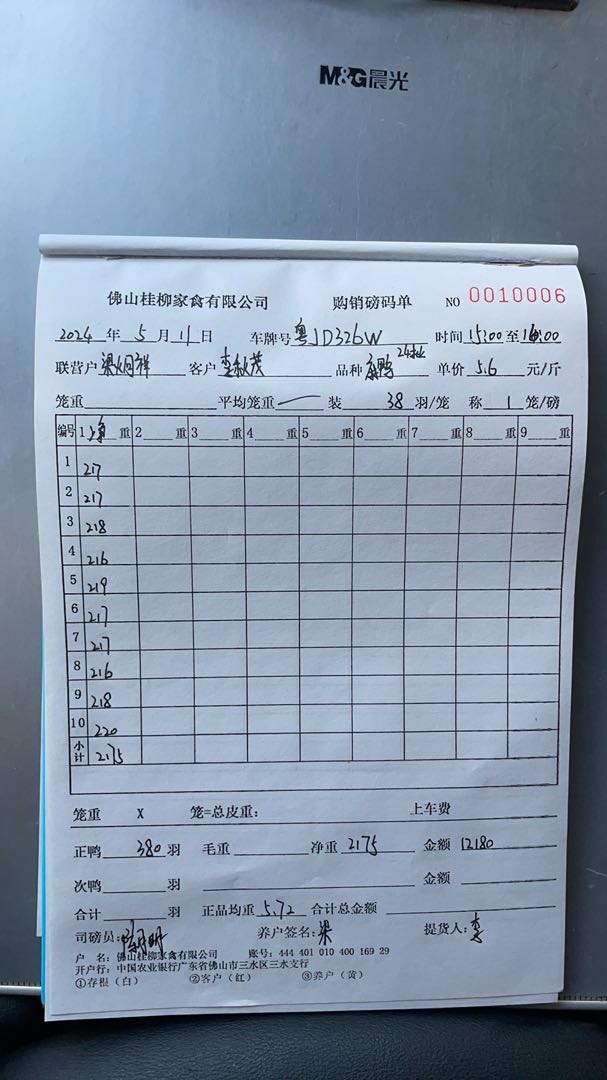 M&G晨光
佛山桂柳家禽有限公司 购销磅码单 NO 0010006
2024 年 5 月 11 日 车牌号 粤JD326W 时间 15:00 至 16:00
联营户 梁炳祥 客户 李秋茂 品种 康鸭 单价 5.6 元/斤
笼重 平均笼重 一 装 38 羽/笼 称 1 笼/磅
编号 1 重 2 重 3 重 4 重 5 重 6 重 7 重 8 重 9 重
1 217
2 217
3 218
4 216
5 219
6 217
7 217
8 216
9 218
10 220
小计 2175
笼重 X 笼=总皮重: 上车费
正鸭 380 羽 毛重 净重 2175 金额 12180
次鸭 羽 金额
合计 羽 正品均重 5.72 合计总金额
司磅员: 养户签名: 梁 提货人: 李
户 名: 佛山桂柳家禽有限公司 账号: 444 401 010 400 169 29
开户行: 中国农业银行广东省佛山市三水区三水支行
①存根(白) ②客户(红) ③养户(黄)